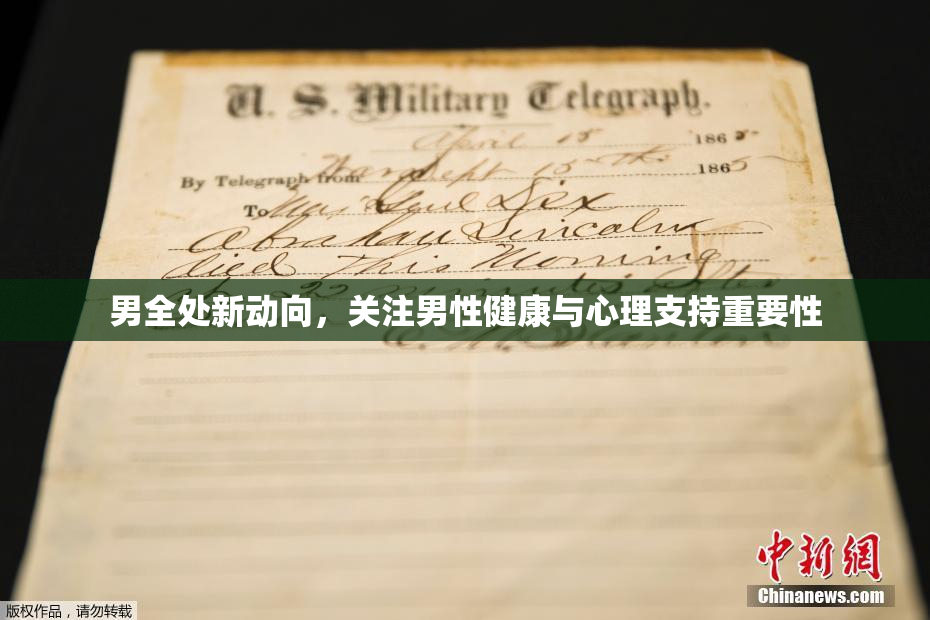 U. S. Military Telegraph.
April 15 1865
By Telegraph from War Dept 15th 1865
To Maj Genl Dix
Abraham Lincoln
died This Morning
at 22 minutes after
男全处新动向，关注男性健康与心理支持重要性
E. M. Stanton
中新網
Chinanews.com
版权作品，请勿转载